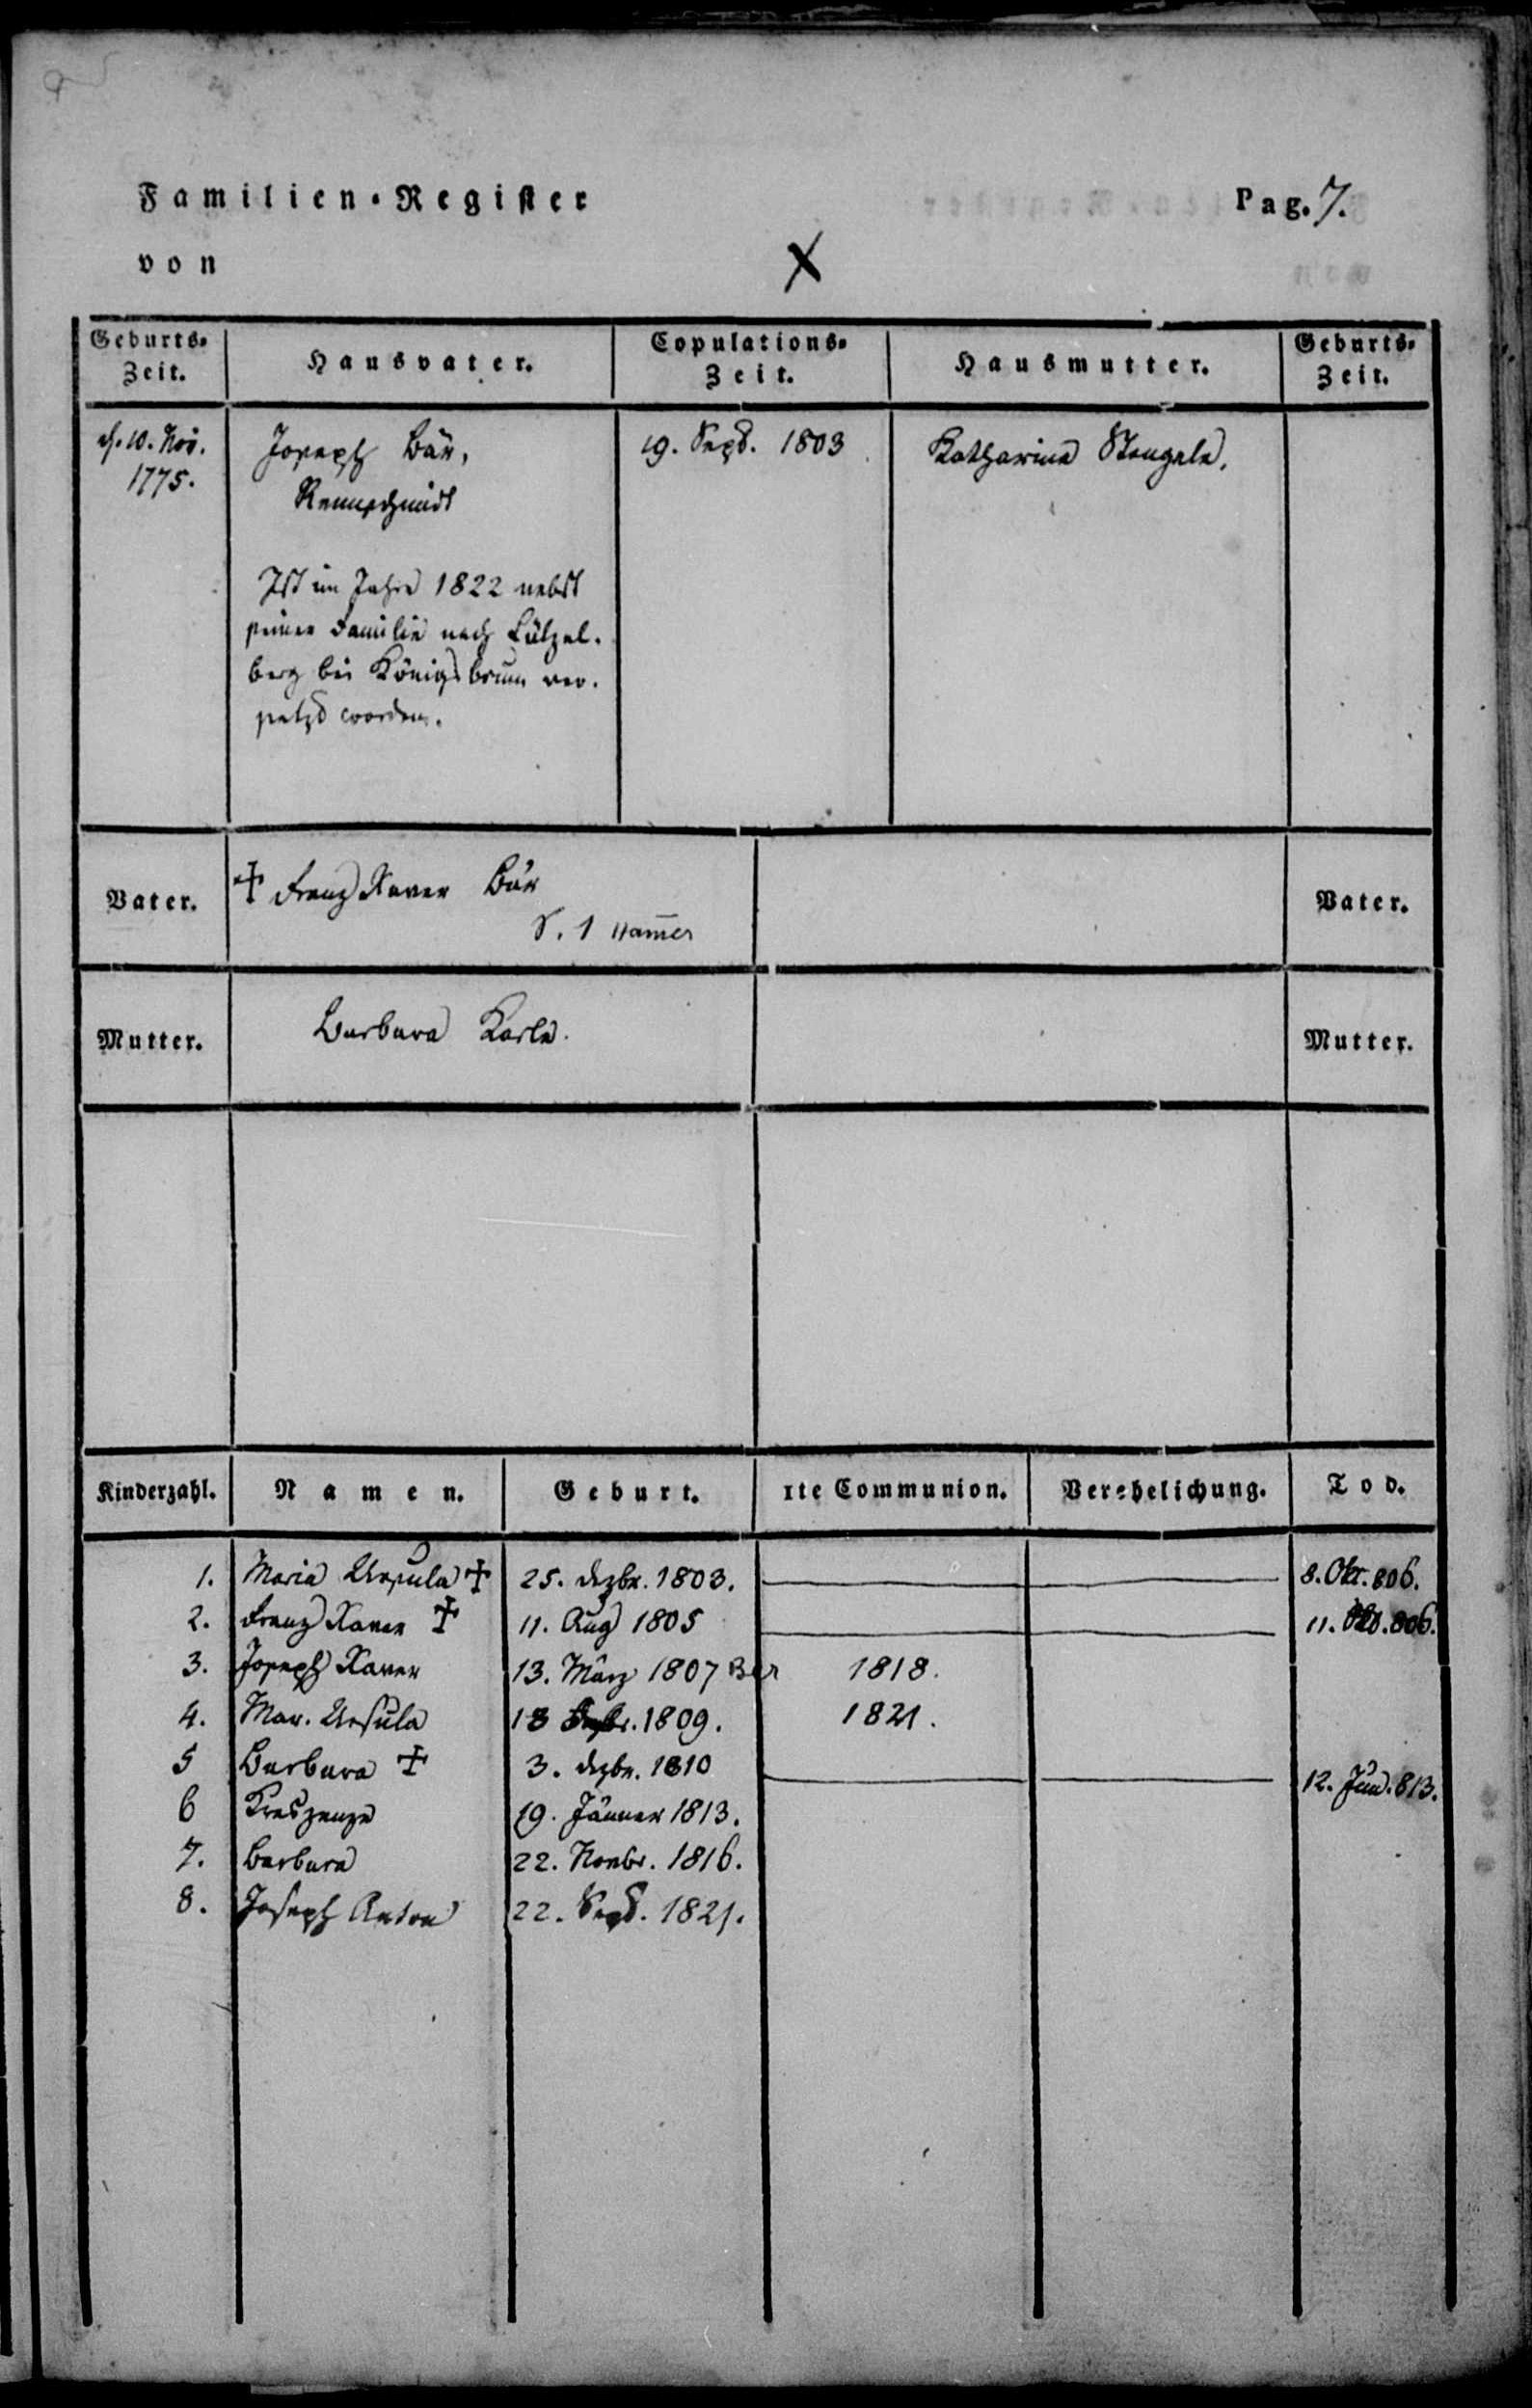 Familien-Register
Pag. 7.
von
X
Geburts-
Zeit.
Hausvater.
Copulations-
Zeit.
Hausmutter.
Geburts-
Zeit.
d. 10. Nov.
1775.
Joseph Bär,
Rennschmidt
19. Sept. 1803
Katharina Stengele,
Ist im Jahre 1822 nebst
seiner Familie nach Lützel-
berg bei Königsbrunn ver-
setzt worden.
Vater.
† Franz Xaver Bär
S. 1
Vater.
Mutter.
Barbara Karle.
Mutter.
Kinderzahl.
Namen.
Geburt.
1te Communion.
Verehelichung.
Tod.
1. Maria Ursula † 25. Dezbr. 1803. 8. Okt. 806.
2. Franz Xaver † 11. Aug 1805 11. Okt. 806.
3. Joseph Xaver 13. März 1807 1818.
4. Mar. Ursula 18 1809. 1821.
5 Barbara † 3. Dezbr. 1810 12. 813.
6 Kreszenze 19. Jänner 1813.
7. Barbara 22. Novbr. 1816.
8. Joseph Anton 22. Sept. 1821.